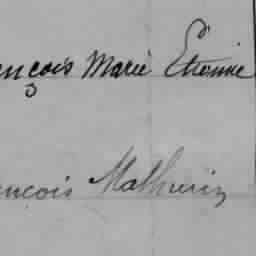 ençois Marie Etienne
ençois Mathurin